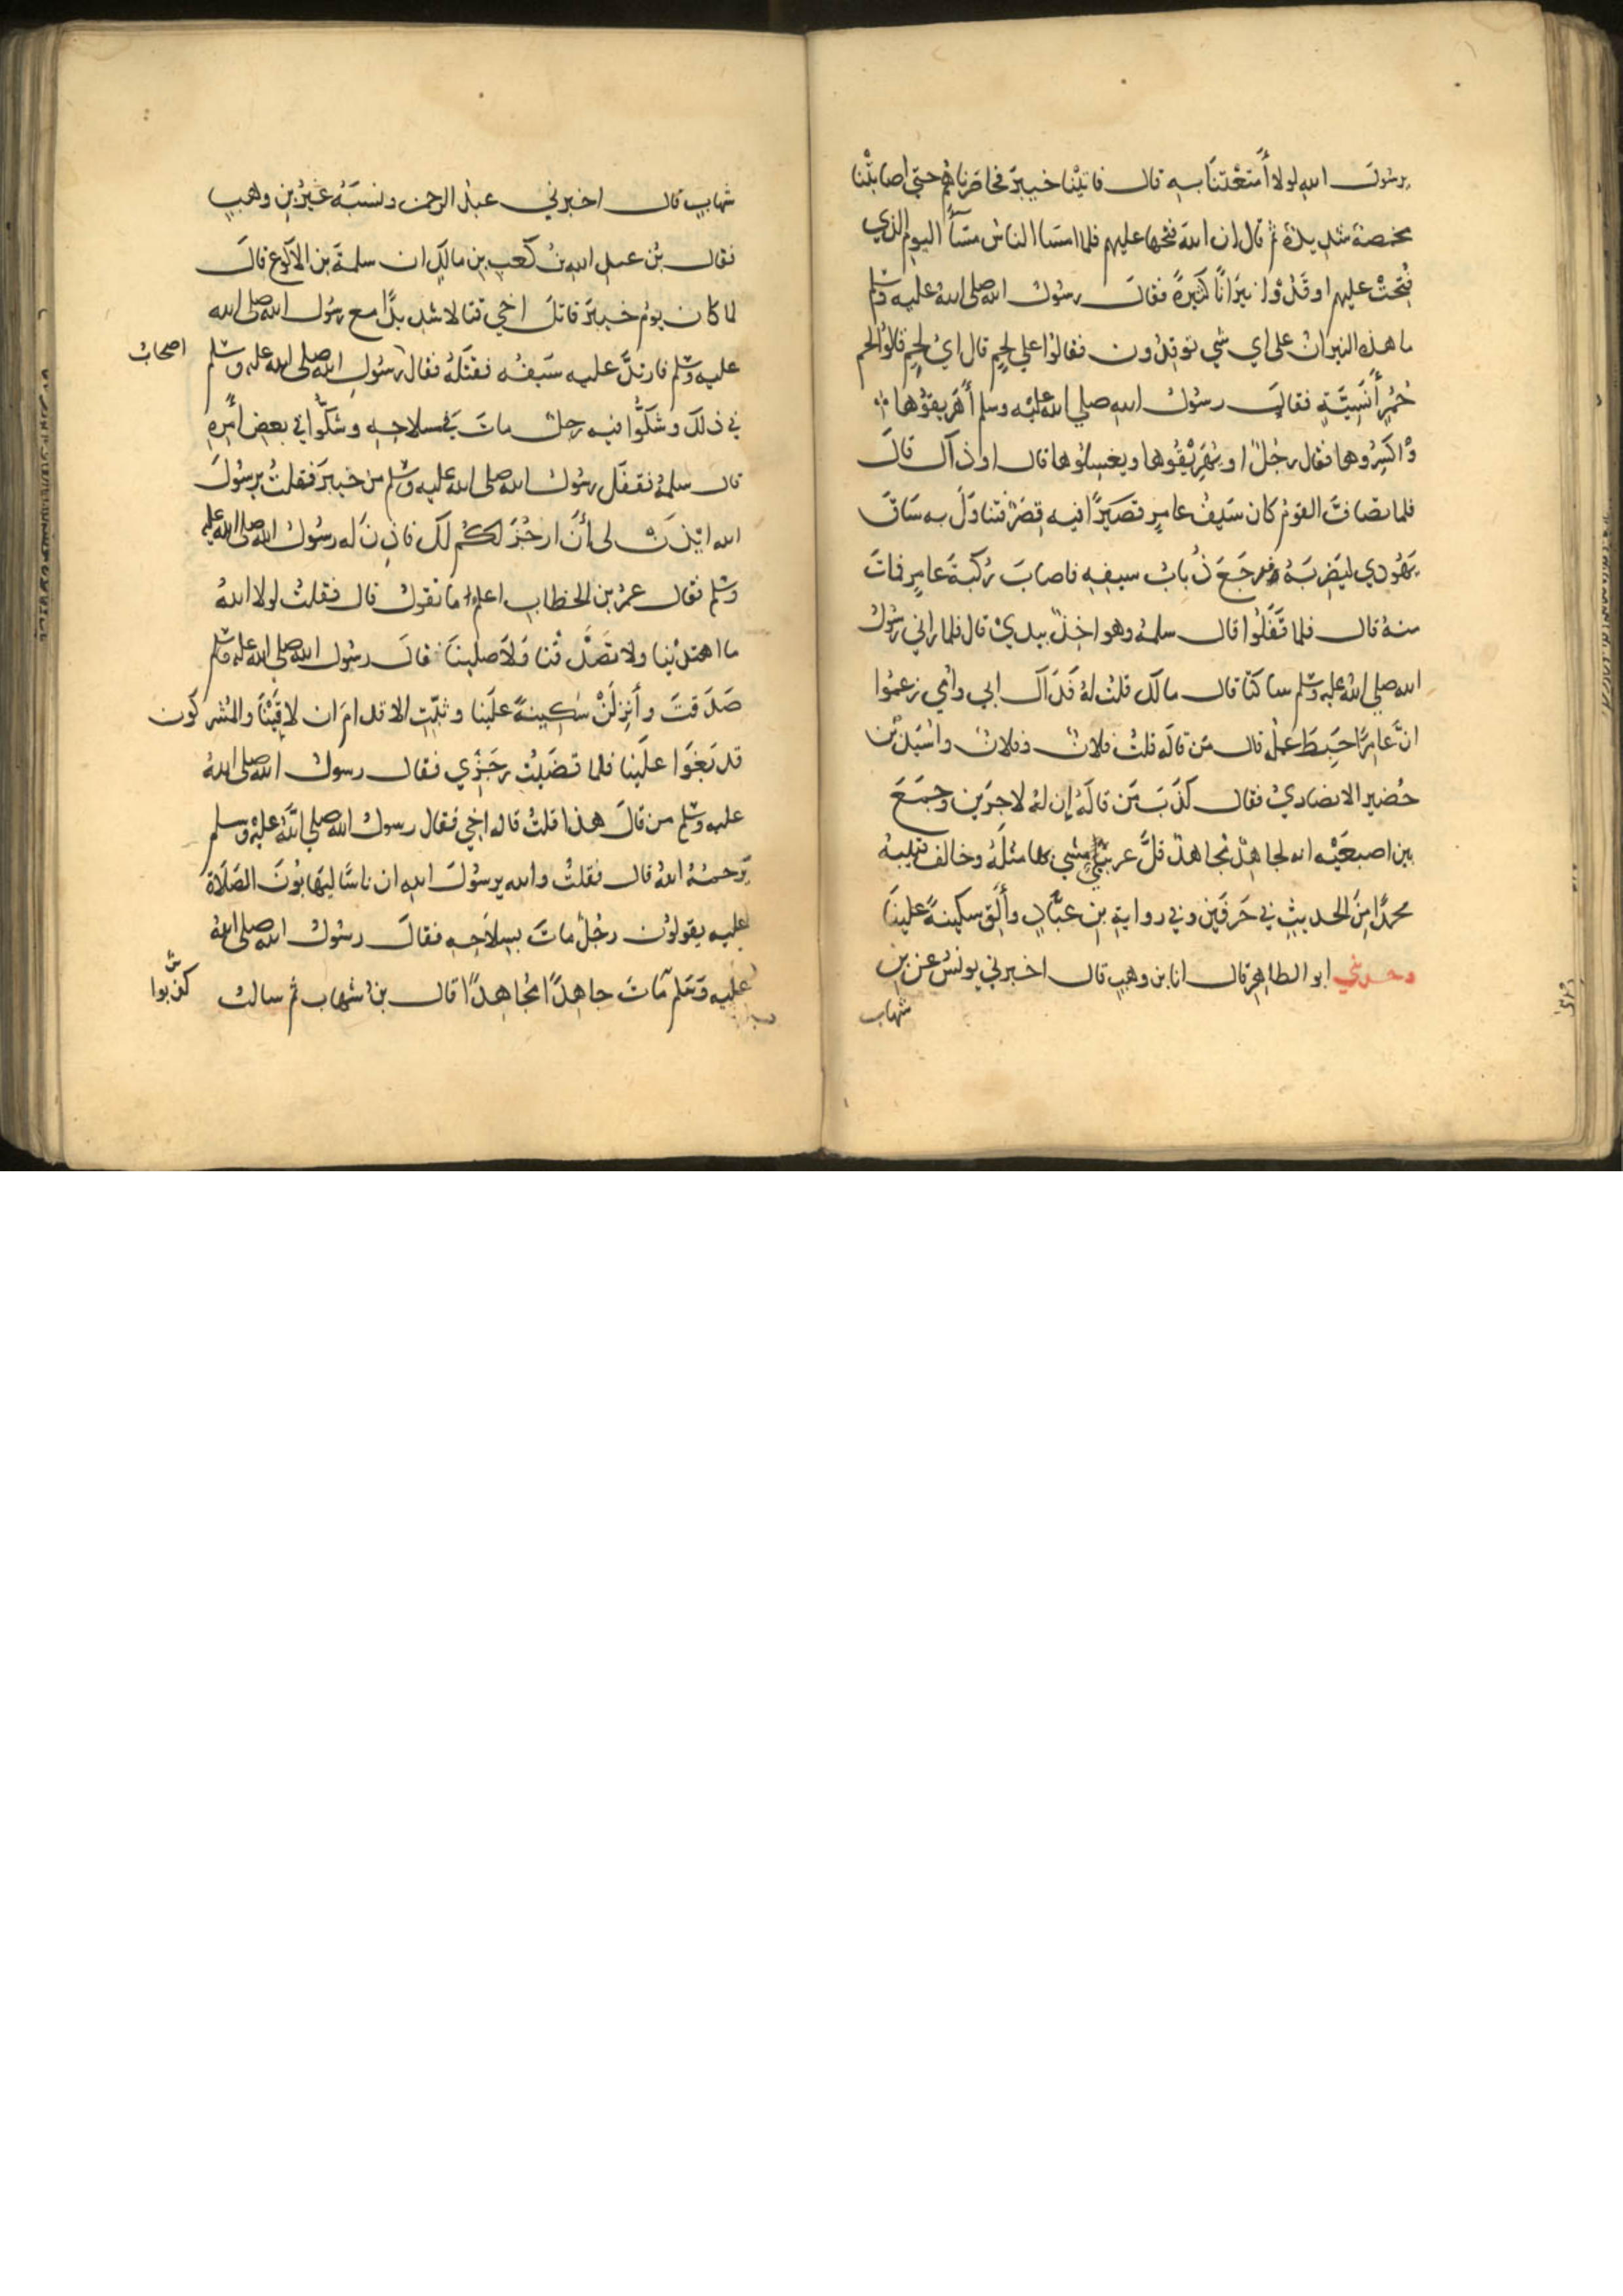 يرسُولَ اللهِ لولا أَمتَعْتَنَا بِهِ قال فاتَيْنا خيبرَ فحاصَرناهُم حتي اصابتْنا
مخمصة شديدة ثم قال ان اللهَ فتحها عليهم فلما امسَا الناسُ مسَأَ اليومِ الذي
فُتِحَتْ عليهم اوقَدُوا نيرَانًا كثيرةً فقالَ رسُولُ اللهِ صلى اللهُ عليه وسلم
ما هذه النيرانُ على اي شي توقِدُون فقالوا علي لحمٍ قال ايُّ لحمٍ قالوا لحم
حُمُرٍ أَنَسِيَّةٍ فقال رسُولُ اللهِ صلي الله عليْه وسلم أَهَرِيقُوها
وْاكسِرُوها فقال رجُلٌ او يُهَرِيْقُوها ويغسِلُوها قال او ذاكَ قالَ
فلما تصَافَّ القومُ كان سَيفُ عامِرٍ قصَيرًا فيه قِصَرٌ فتناوَلَ به سَاقَ
يَهُودي ليَضرِبَهُ فرجَعَ ذُبابُ سيفِهِ فاصابَ رُكبَةَ عامِرٍ فماتَ
منهُ قال فلما قَفَلُوا قال سلمةُ وهو اخِذٌ بيدي قال فلما راني رسُولُ
اللهِ صلي اللهُ عليهِ وسلم ساكتًا قال مالكَ قلتُ لهُ فَدَاكَ ابي واُمي زعمُوا
انَّ عامِرًا حَبِطَ عملُه قال من قالَه قلتُ فلانٌ وفلانٌ واُسَيدُ بْن
حُضَيرٍ الانصَاريُّ فقال كذَبَ مَن قالَهُ إن لهُ لاجرَين وجمَعَ
بين اصبعَيْه انه لجاهِدٌ مُجاهدٌ قلَّ عربيٌّ مشي بها مثلَهُ وخالفَ قتيبةُ
محمدًا مِنَ الحديثِ في حَرفَين وفي روايةِ بنِ عبَّادٍ وأَلقِ سكينةً علينَا
وحدثني ابو الطاهِرِ قال انا بن وهبٍ قال اخبرني يونسُ عن بن
شهاب
شهابٍ قال اخبرني عبدُ الرحمن ونسَبَهُ غيرُ بنِ وهبٍ
فقال بنُ عبدِ اللهِ بنُ كَعبِ بنِ مالكٍ ان سلمةَ بن الاَكوَعِ قالَ
لما كان يومُ خيبرَ قاتلَ اخي قتالا شديدًا مع رسُولِ اللهِ صلى الله
عليه وسلم فارتدَّ عليه سَيفُه فقتَلَهُ فقال رسُولِ اللهِ صلى الله عليه وسلم
اصحابُ
في ذلكَ وشَكُّوا فيه رجلٌ ماتَ في سلاحِهِ وشكُّوا في بعضِ اَمرِهِ
قال سلمةُ فقفَل رسُولُ الله صلى الله عليه وسلم من خيبرَ فقلتُ يرسُولَ
الله ايْذَنْ لي أَنَ ارجُزَ لكُم لكَ فاذِنَ لَه رسُولُ اللهِ صلى الله عليه
وسلم فقال عمرُ بن الخطابِ اعلمُ ما تقولُ قال فقلتُ لولا اللهُ
ما اهتدَيْنا ولا تصَدَّقنا وَلاَ صلينَا فقالَ رسُول الله صلى الله عليه وسلم
صَدَقتَ وأَنزِلَنْ سَكِينةً علَينا وثبّتِ الاقدامَ ان لاقَيْنَا والمُشركَون
قد بَغَوا علَينا فلما قضَيتُ رجَزِي فقال رسولُ الله صلى اللهُ
عليه وسلم من قالَ هذا قلتُ قاله اخِي فقال رسولُ اللهِ صلي اللهُ عليْه وسلم
يَرحمُهُ اللهُ قال فقلتُ والله يرسُولَ اللهِ ان ناسًا ليَهابُونَ الصَلَاةَ
عليه يقولوُن رجُلٌ ماتَ بسِلاَحِهِ فقالَ رسُولُ اللهِ صلى اللهُ
عليه وَسَلم مَاتَ جاهِدًا مُجَاهِدًا قال بنُ شهاب ثم سالتُ
كذبوا